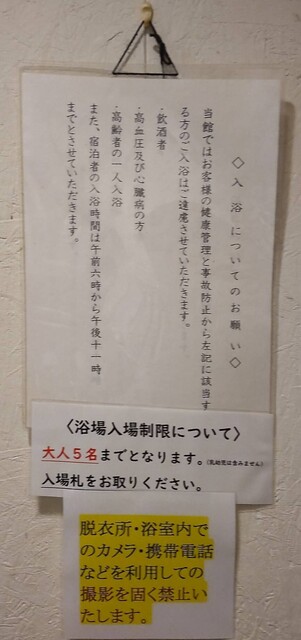 ◇入浴についてのお願い◇
当館ではお客様の健康管理と事故防止から左記に該当す
る方のご入浴はご遠慮させていただきます。
・飲酒者
・高血圧及び心臓病の方
・高齢者の一人入浴
また、宿泊者の入浴時間は午前六時から午後十一時
までとさせていただきます。
〈浴場入場制限について〉
大人5名までとなります。(乳幼児は含みません)
入場札をお取りください。
脱衣所・浴室内で
のカメラ・携帯電話
などを利用しての
撮影を固く禁止い
たします。